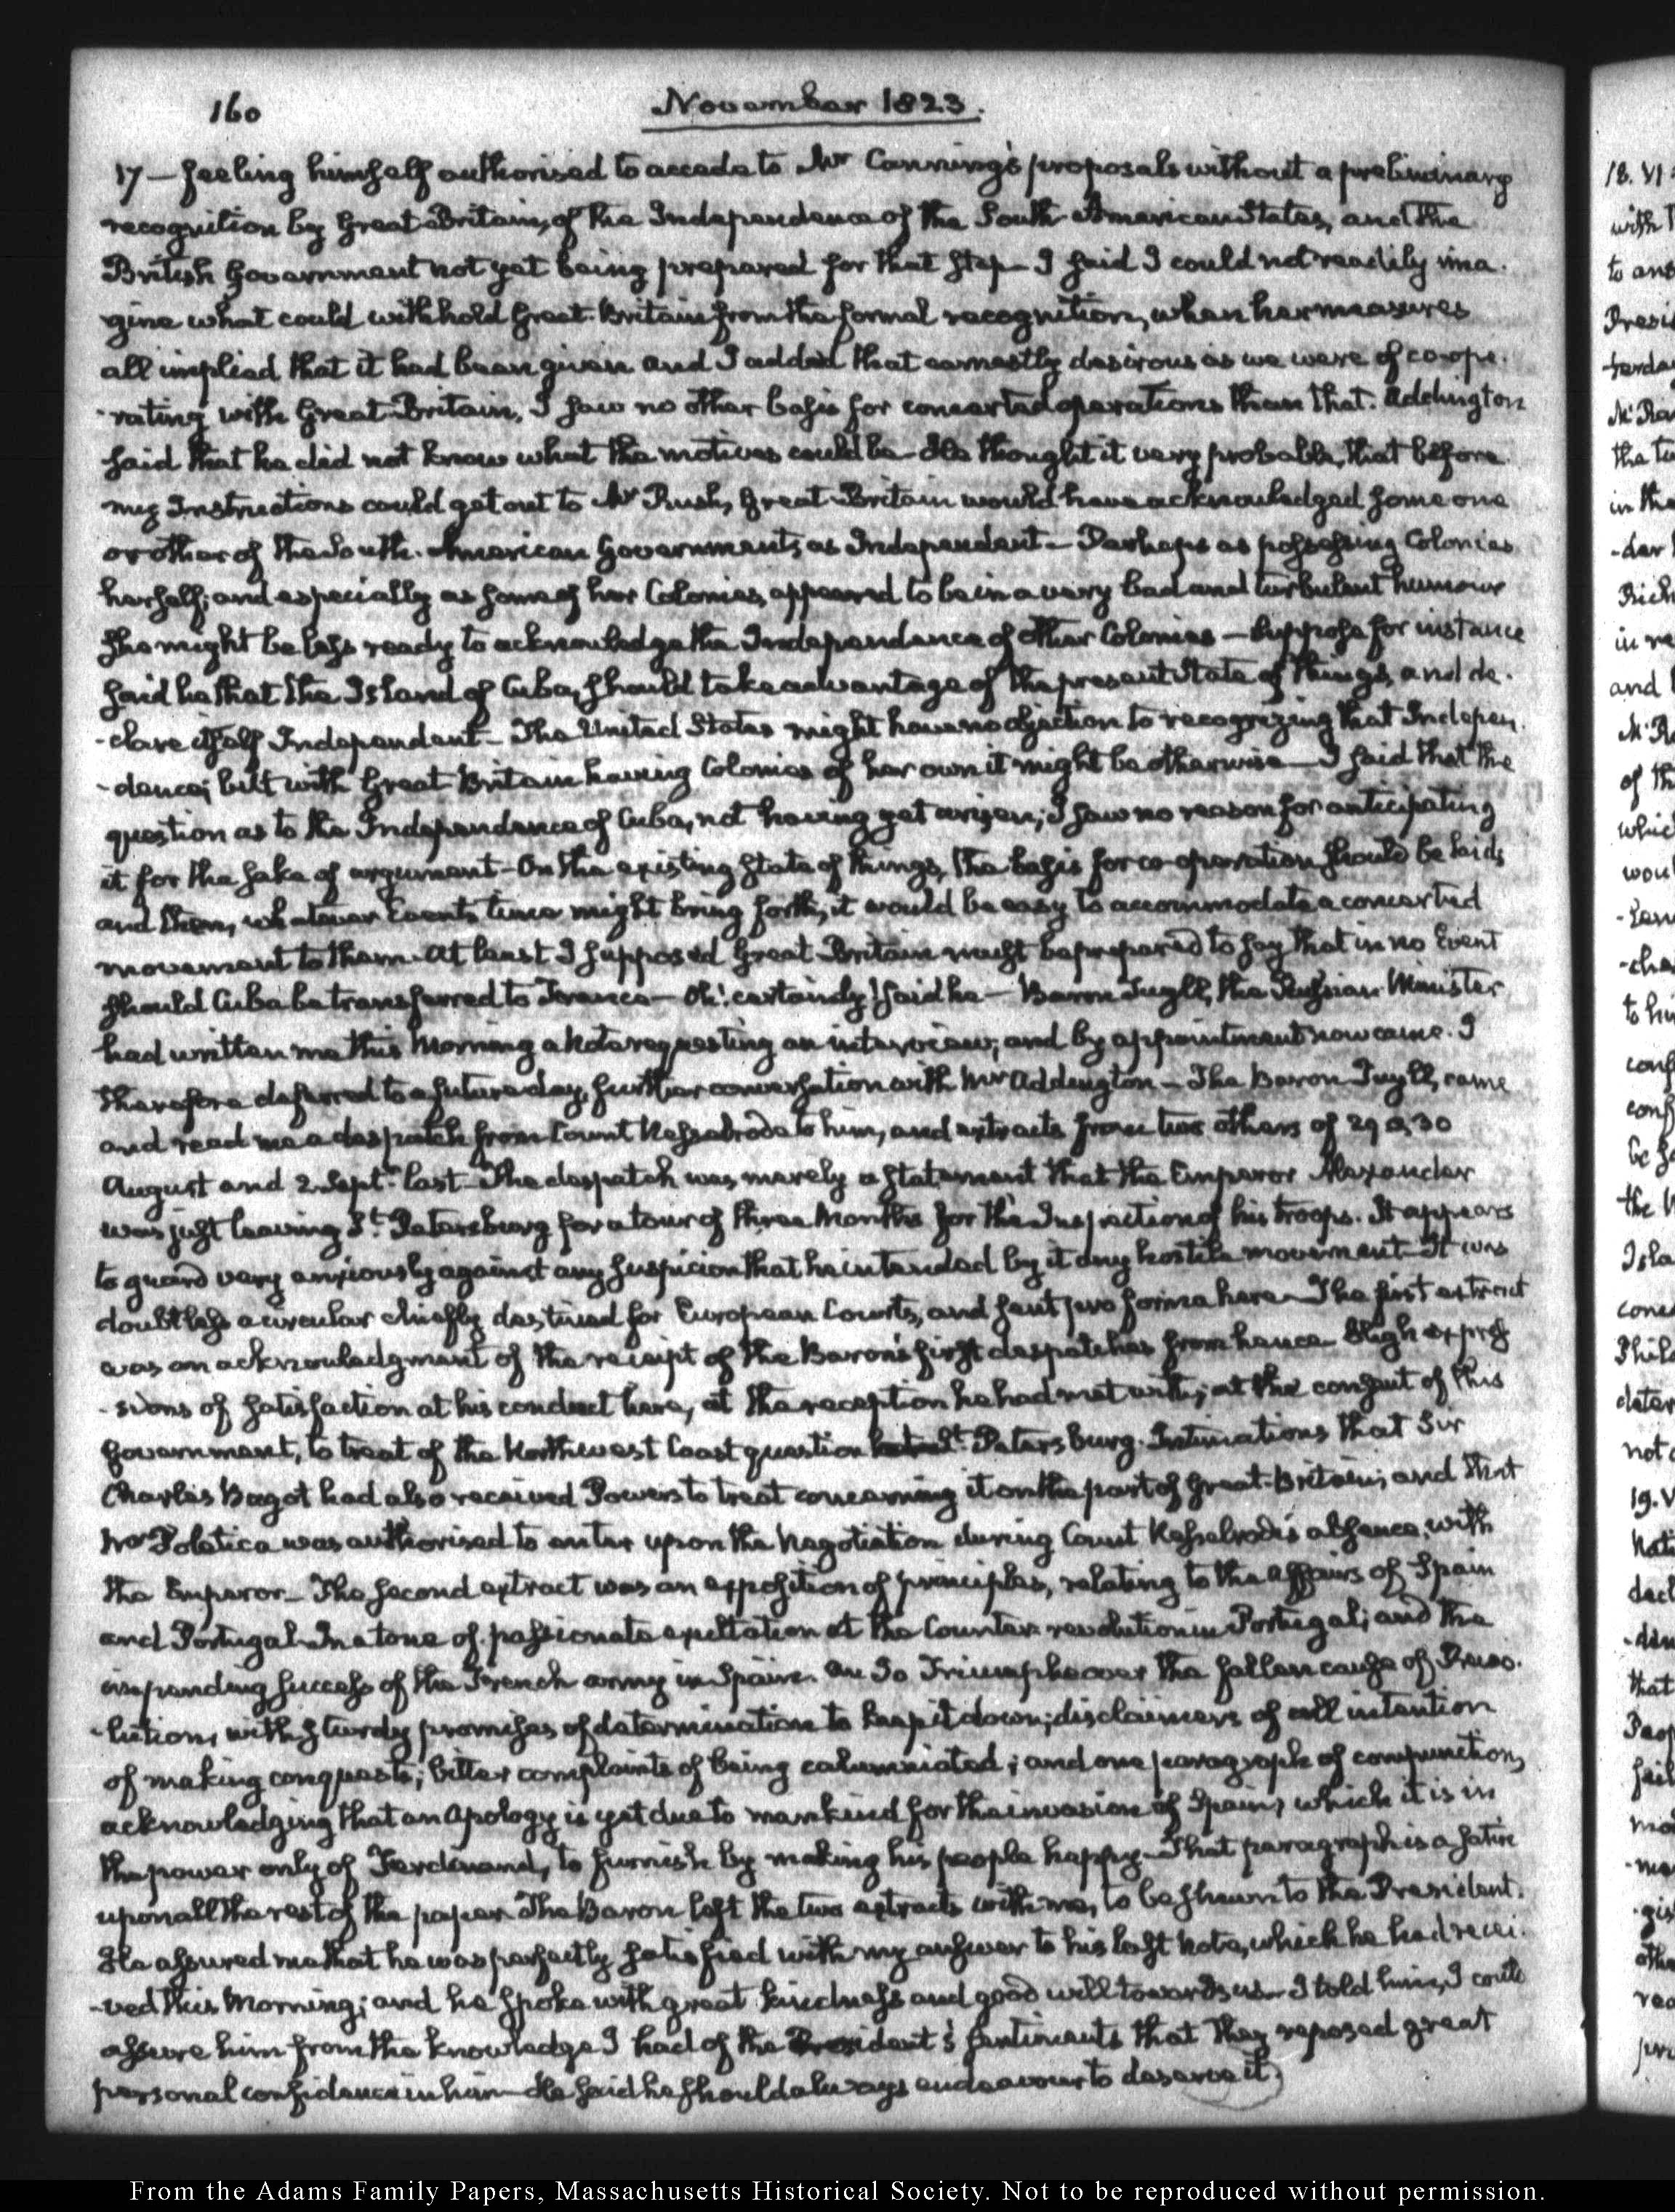 160
November 1823.
17 — feeling himself authorised to accede to Mr Canning's proposals without a preliminary
recognition by Great-Britain, of the Independence of the South-American States, and the
British Government not yet being prepared for that step — I said I could not readily ima-
gine what could withhold Great-Britain from the formal recognition, when her measures
all implied that it had been given and I added that earnestly desirous as we were of co-ope-
-rating with Great-Britain, I saw no other basis for concerted operations than that. Addington
said that he did not know what the motives could be — He thought it very probable, that before
my Instructions could get out to Mr Rush, Great-Britain would have acknowledged some one
or other of the South-American Governments as Independent — Perhaps as possessing Colonies
herself; and especially as some of her Colonies, appeared to be in a very bad and turbulent humour
she might be less ready to acknowledge the Independence of other Colonies — Suppose for instance
said he that the Island of Cuba, should take advantage of the present state of things, and de-
-clare itself Independent — The United States might have no objection to recognizing that Indepen-
-dence; but with Great Britain having Colonies of her own it might be otherwise — I said that the
question as to the Independence of Cuba, not having yet arisen; I saw no reason for anticipating
it for the sake of argument — On the existing state of things, the basis for co-operation should be laid;
and then, whatever Events time might bring forth, it would be easy to accommodate a concerted
movement to them. At least I supposed Great-Britain must be prepared to say that in no Event
should Cuba be transferred to France — Oh! certainly! said he — Baron Tuyll, the Russian Minister
had written me this Morning a Note requesting an interview; and by appointment now came. I
therefore deferred to a future day, further conversation with Mr Addington — The Baron Tuyll, came
and read me a despatch from Count Nesselrode to him, and extracts from two others of 29 a, 30
August and 2 Septr last — The despatch was merely a statement that the Emperor Alexander
was just leaving St. Petersburg for a tour of three Months for the Inspection of his troops. It appears
to guard very anxiously against any suspicion that he intended by it any hostile movement — It was
doubtless a circular chiefly destined for European Courts, and sent pro forma here — The first extract
was an acknowledgment of the receipt of the Baron's first despatches from hence — High expres-
-sions of satisfaction at his conduct here, at the reception he had met with; at the consent of this
Government, to treat of the Northwest Coast question St. Petersburg. Intimations that Sir
Charles Bagot had also received Powers to treat concerning it on the part of Great-Britain; and that
Mr Poletica was authorised to enter upon the Negotiation during Count Nesselrode's absence, with
the Emperor — The second extract was an exposition of principles, relating to the affairs of Spain
and Portugal — In a tone of passionate exultation at the Counter-revolution in Portugal; and the
impending success of the French army in Spain. An Io Triumphe over the fallen cause of Revo-
-lution, with sturdy promises of determination to keep it down; disclaimers of all intention
of making conquests; bitter complaints of being calumniated; and one paragraph of compunction,
acknowledging that an Apology is yet due to mankind for the invasion of Spain, which it is in
the power only of Ferdinand, to furnish by making his people happy — That paragraph is a satire
upon all the rest of the paper. The Baron left the two extracts with me, to be shewn to the President.
He assured me that he was perfectly satisfied with my answer to his last Note, which he had recei-
-ved this Morning; and he spoke with great kindness and good will towards us — I told him, I could
assure him from the knowledge I had of the President's sentiments that they reposed great
personal confidence in him — He said he should always endeavour to deserve it.
From the Adams Family Papers, Massachusetts Historical Society. Not to be reproduced without permission.